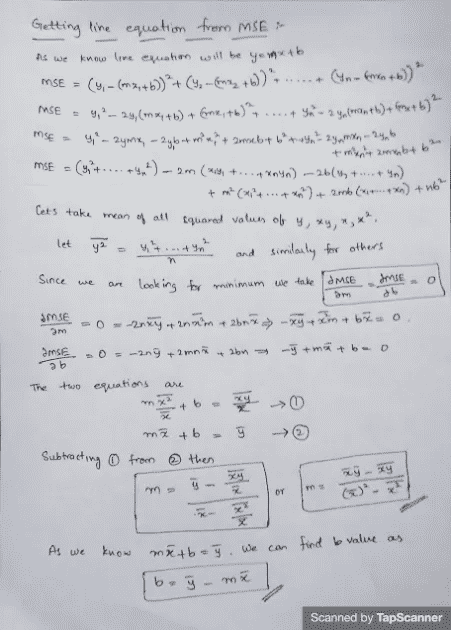 Getting line equation from MSE :-
As we know line equation will be y=mx+b
MSE = (y₁-(mx₁+b))² + (y₂-(mx₂+b))² + ...... + (yn-(mxn+b))²
MSE = y₁² - 2y₁(mx₁+b) + (mx₁+b)² + .... + yn² - 2yn(mxn+b) + (mxn+b)²
MSE = y₁² - 2y₁mx₁ - 2y₁b + m²x₁² + 2mx₁b + b² + ... + yn² - 2ynmxn - 2ynb
+ m²xn² + 2mxnb + b²
MSE = (y₁²+....+yn²) - 2m(x₁y₁+....+xnyn) - 2b(y₁+....+yn)
+ m²(x₁²+....+xn²) + 2mb(x₁+....+xn) + nb²
Lets take mean of all squared values of y, xy, x, x².
let y̅²̅ = (y₁²+...+yn²)/n and similarly for others
Since we are looking for minimum we take ∂MSE/∂m = ∂MSE/∂b = 0
∂MSE/∂m = 0 = -2nx̅y̅ + 2nx̅²̅m + 2bnx̅ ⇒ -x̅y̅ + x̅²̅m + bx̅ = 0.
∂MSE/∂b = 0 = -2ny̅ + 2mnx̅ + 2bn ⇒ -y̅ + mx̅ + b = 0
The two equations are
m x̅²̅/x̅ + b = x̅y̅/x̅ → ①
mx̅ + b = y̅ → ②
Subtracting ① from ② then
m = (y̅ - x̅y̅/x̅)/(x̅ - x̅²̅/x̅) or m = (x̅ y̅ - x̅y̅)/((x̅)² - x̅²̅)
As we know mx̅+b = y̅. We can find b value as
b = y̅ - mx̅
Scanned by TapScanner